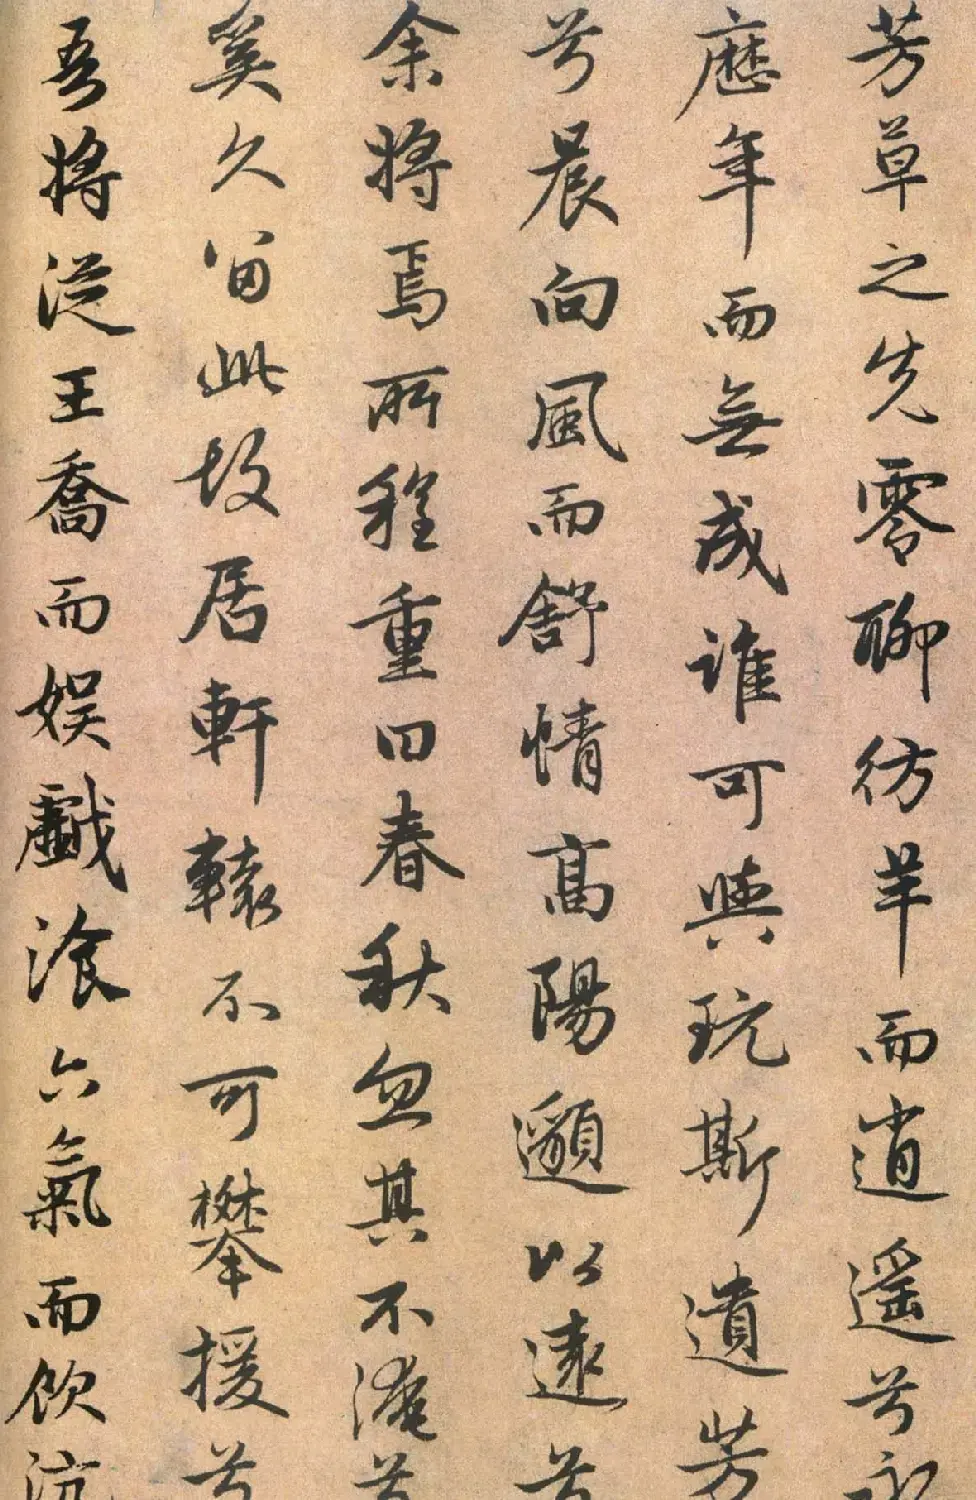 芳草之先零聊彷羊而逍遥兮永
歷年而無成誰可與玩斯遺芳
兮晨向風而舒情高陽邈以遠兮
余將焉所程重曰春秋忽其不淹兮
奚久留此故居軒轅不可攀援兮
吾將從王喬而娱戲飡六氣而飲沆